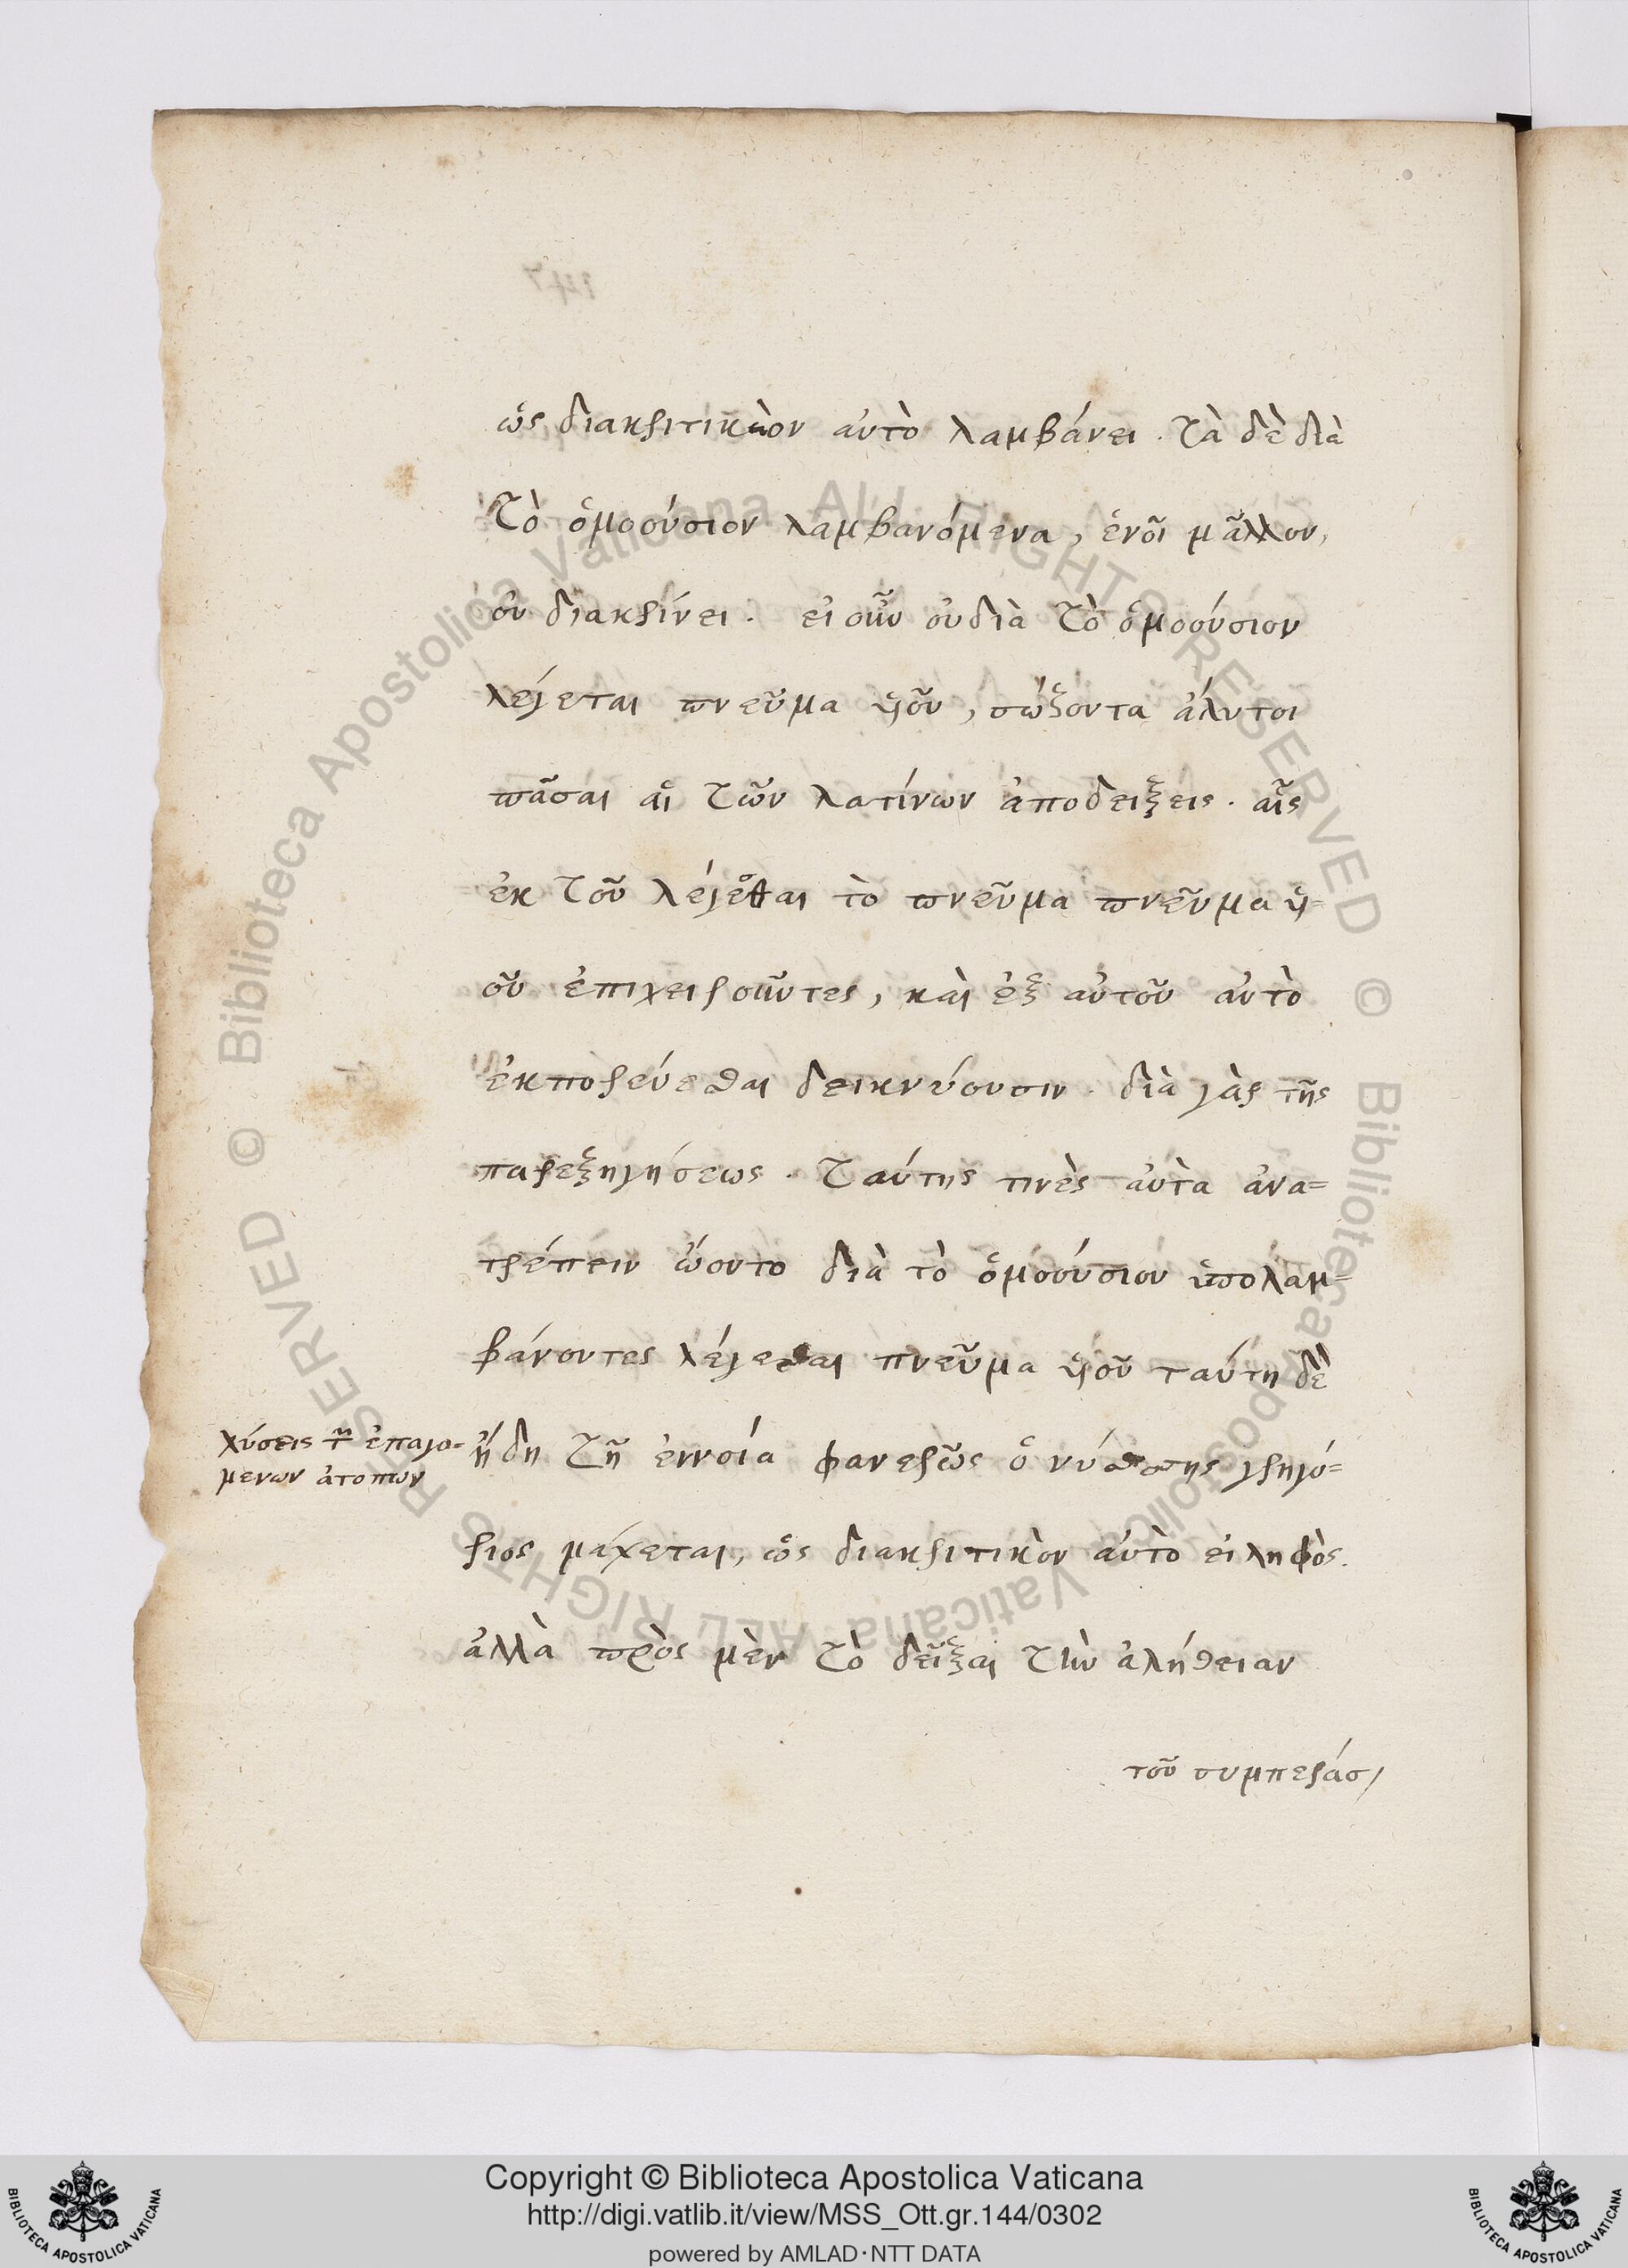 ὡς διακριτικὸν αὐτὸ λαμβάνει. τὰ δὲ διὰ
τὸ ὁμοούσιον λαμβανόμενα, ἑνοῖ μᾶλλον,
οὐ διακρίνει. εἰ οὖν οὐ διὰ τὸ ὁμοούσιον
λέγεται πνεῦμα ὑιοῦ, σώζονται ἄλυτοι
πᾶσαι αἱ τῶν λατίνων ἀποδείξεις. αἷς
ἐκ τοῦ λέγεσθαι τὸ πνεῦμα πνεῦμα ὑι=
οῦ ἐπιχειροῦντες, καὶ ἐξ αὐτοῦ αὐτὸ
ἐκπορεύεσθαι δεικνύουσιν. διὰ γὰρ τῆς
παρεξηγήσεως. ταύτης τινὲς αὐτὰ ἀνα=
τρέπειν ὤοντο διὰ τὸ ὁμοούσιον ὑπολαμ=
βάνοντες λέγεσθαι πνεῦμα ὑιοῦ ταύτη δὲ
λύσεις τῶν ἐπαγο=
μενων ἀτοπων
ἤδη τῇ ἐννοία φανερῶς ὁ νύσσης γρηγό=
ριος μάχεται, ὡς διακριτικὸν αὐτὸ εἰληφὸς.
ἀλλὰ πρὸς μὲν τὸ δεῖξαι τὴν ἀλήθειαν
τοῦ συμπεράσ
Copyright © Biblioteca Apostolica Vaticana
http://digi.vatlib.it/view/MSS_Ott.gr.144/0302
powered by AMLAD·NTT DATA